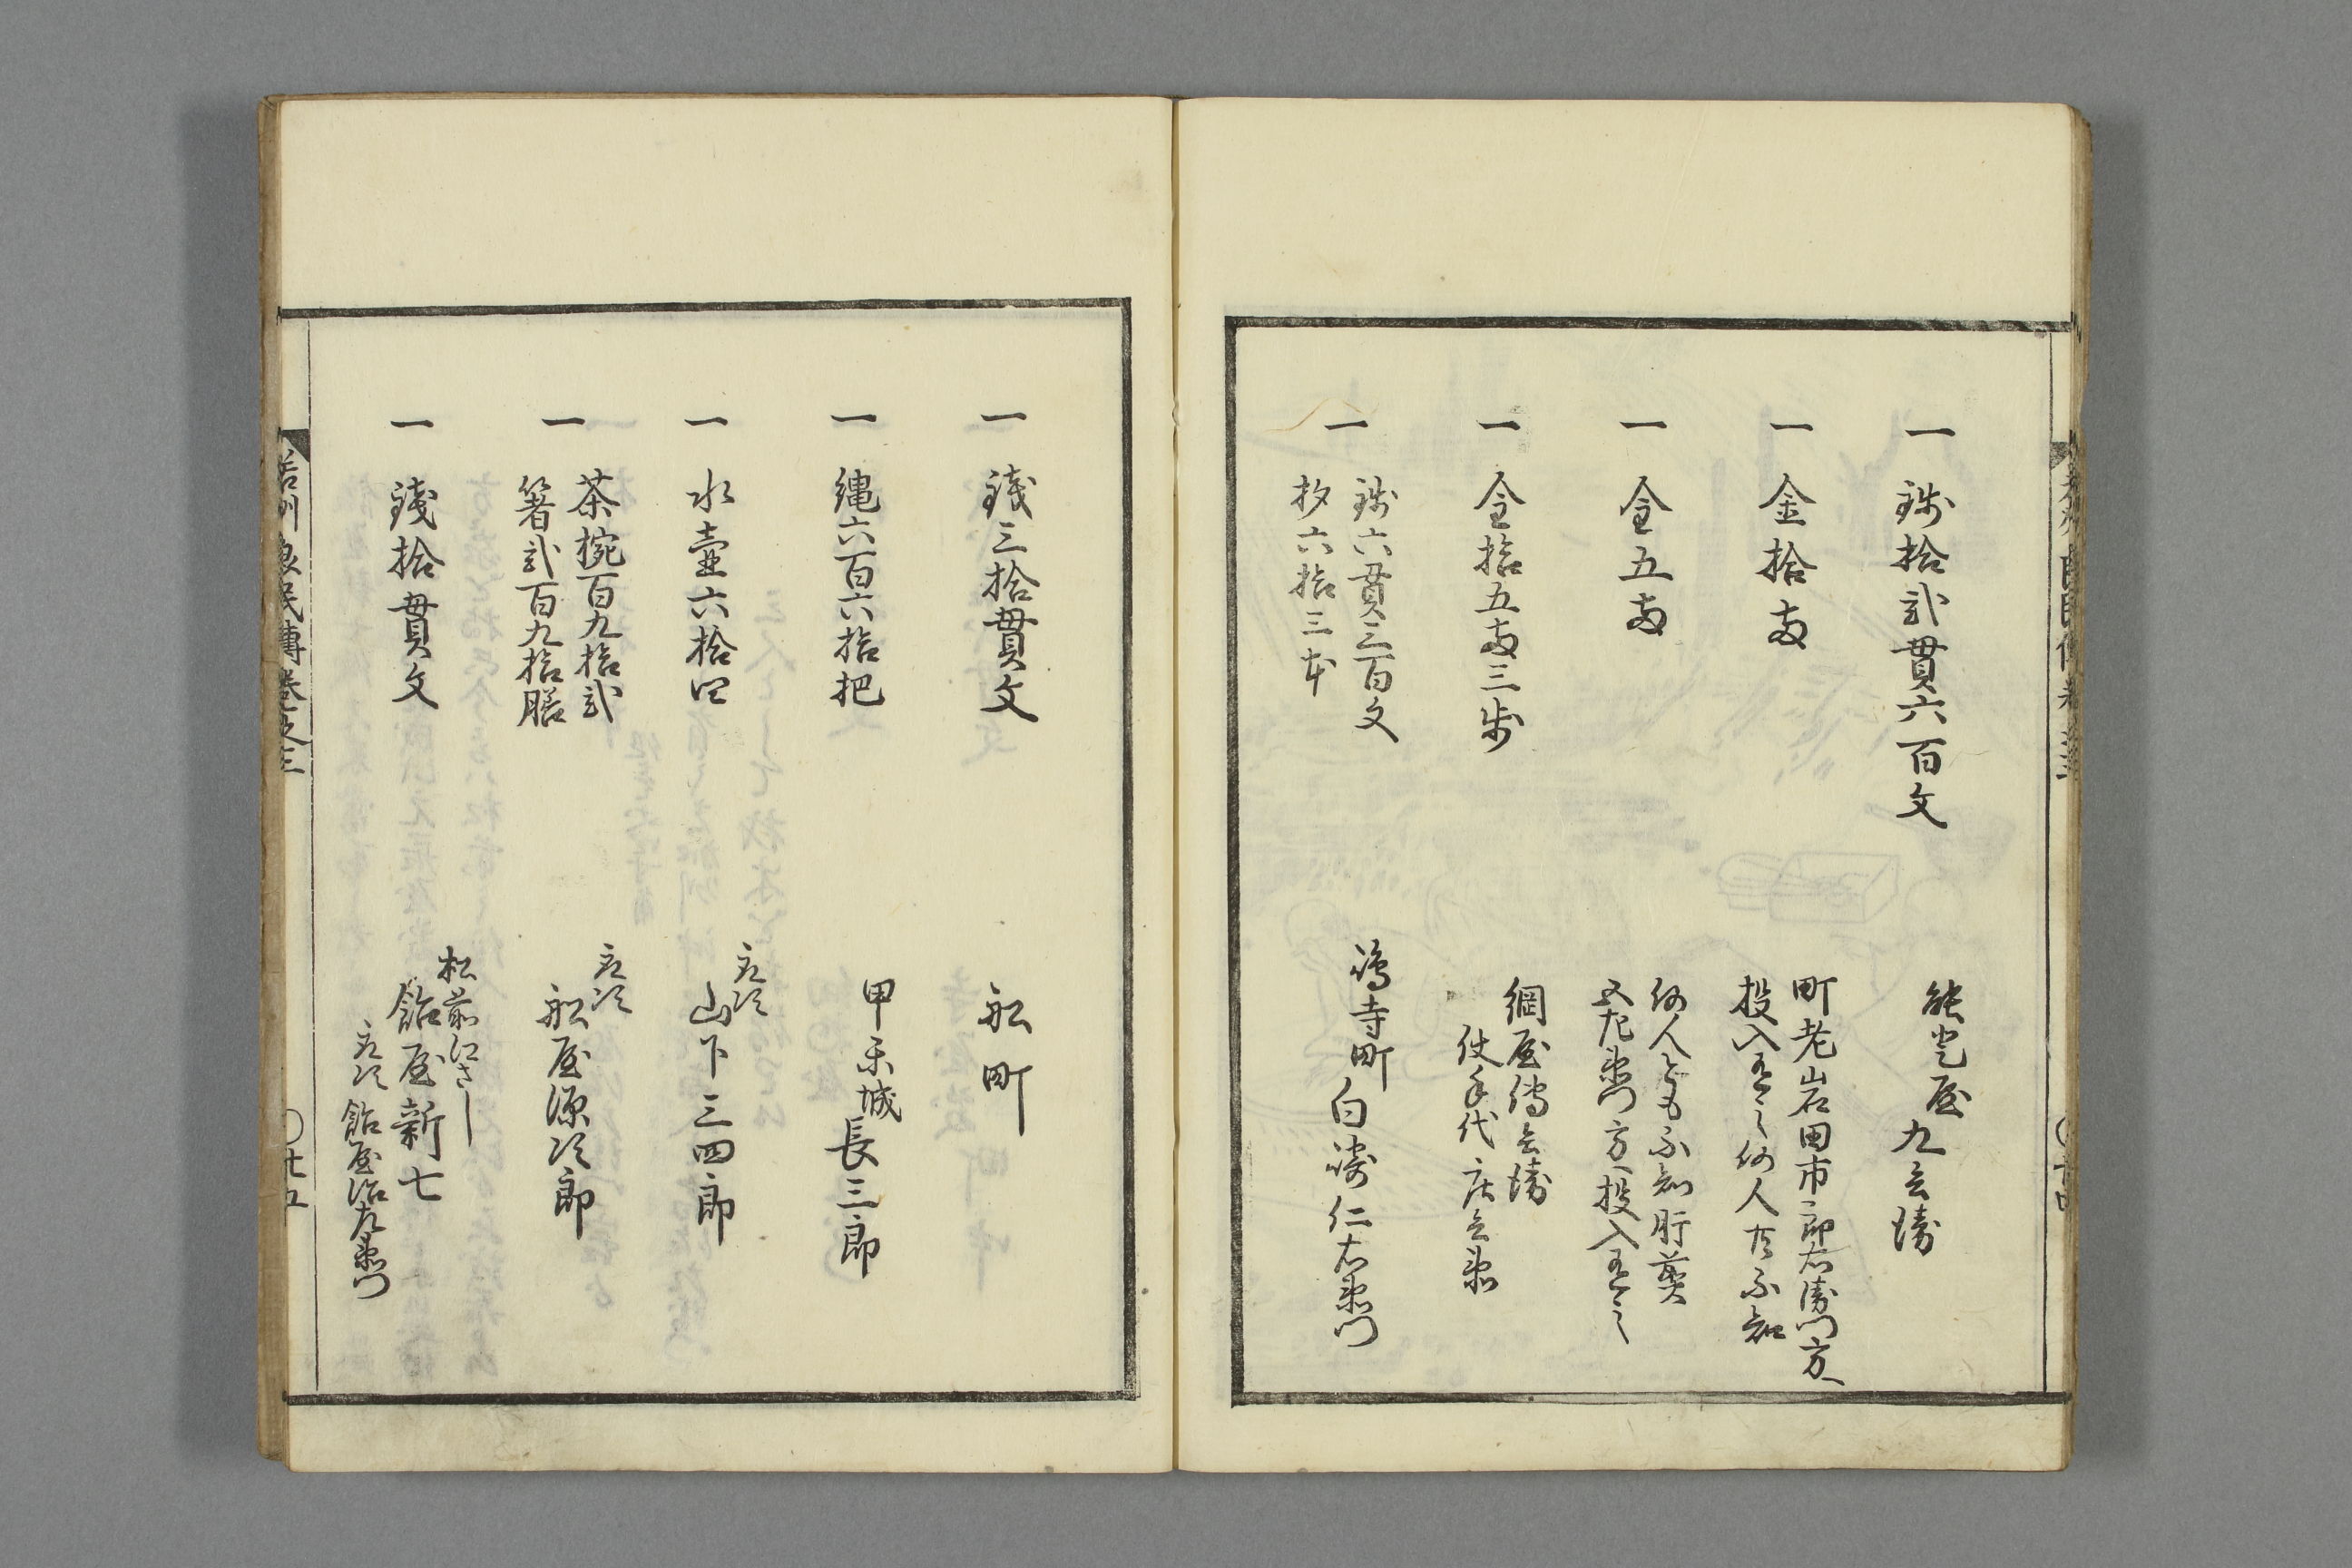 一 錢拾弐貫六百文
能登屋九兵衛
一 金拾両
町老岩田市郎右衛門方へ
投入有之何人共不知
一 金五両
何人とも不知肝煎
又左衛門方へ投入有之
一 金拾五両三歩
綱屋傳兵衛
伏手代庄兵衛
一 錢六貫三百文
杉六拾三本
寺町
白 仁右衛門
一 錢三拾貫文
船町
一 縄六百六拾把
甲 城 長三郎
一 水壷六拾四
山下三四郎
一 茶椀百九拾弐
箸弐百九拾膳
船屋源次郎
一 錢拾貫文
松前江さし
飴屋新七
飴屋治左衛門
良民傳巻之三
廿五